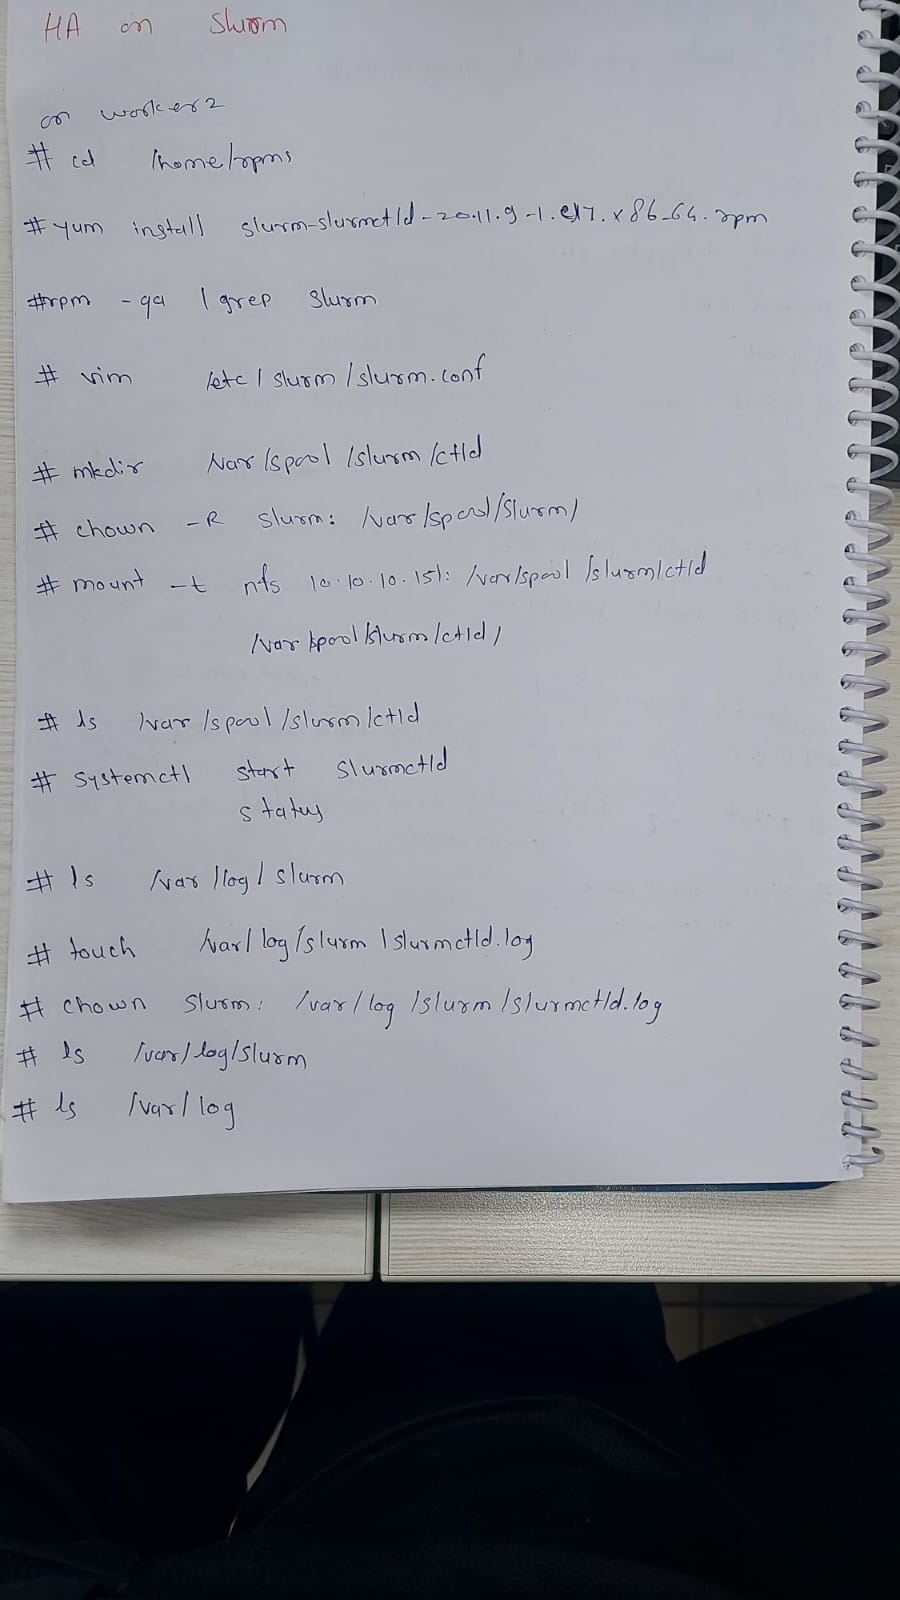 HA on Slurm
on worker2
# cd /home/rpms
# yum install slurm-slurmctld-20.11.9-1.el7.x86_64.rpm
#rpm -qa | grep slurm
# vim /etc/slurm/slurm.conf
# mkdir /var/spool/slurm/ctld
# chown -R slurm: /var/spool/slurm/
# mount -t nfs 10.10.10.151: /var/spool/slurm/ctld
/var/spool/slurm/ctld/
# ls /var/spool/slurm/ctld
# systemctl start slurmctld
status
# ls /var/log/slurm
# touch /var/log/slurm/slurmctld.log
# chown slurm: /var/log/slurm/slurmctld.log
# ls /var/log/slurm
# ls /var/log